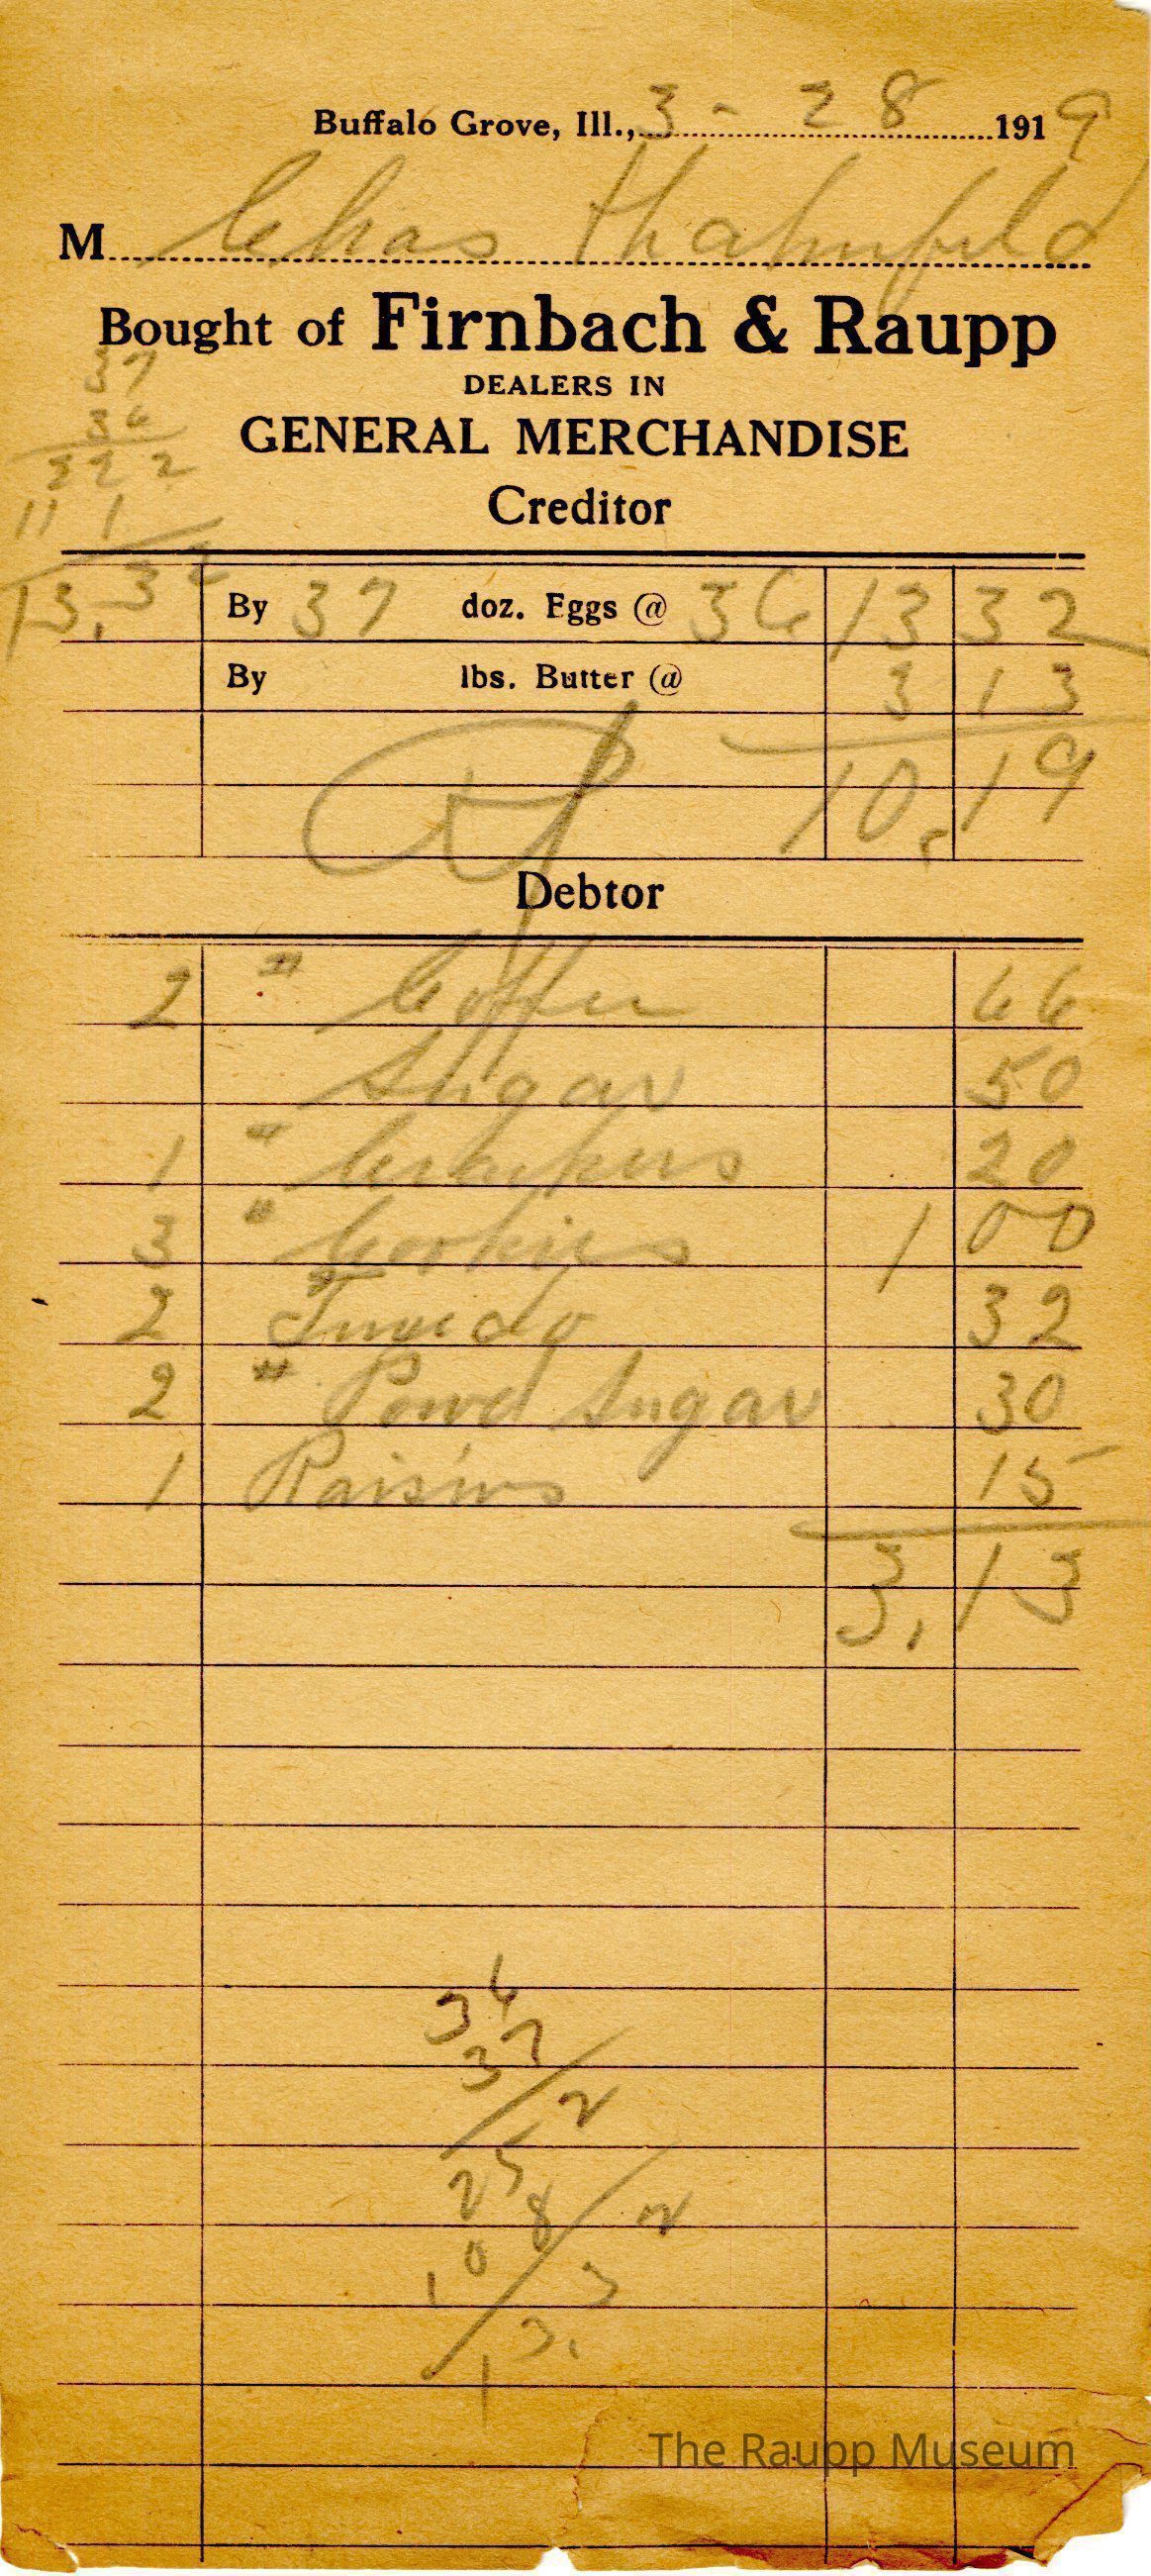 Buffalo Grove, Ill., 3 - 28 1919
M Chas Thahnfeld
Bought of Firnbach & Raupp
DEALERS IN
GENERAL MERCHANDISE
Creditor
37
36
222
11 1
13.32
By 37 doz. Eggs @ 36 13 32
By lbs. Butter @ 3 13
10.19
Debtor
2 " Coffee 66
Sugar 50
1 " Crackers 20
3 " Cookies 1 00
2 32
2 " Powd Sugar 30
1 Raisins 15
3.13
36
37
252
108
1332
The Raupp Museum